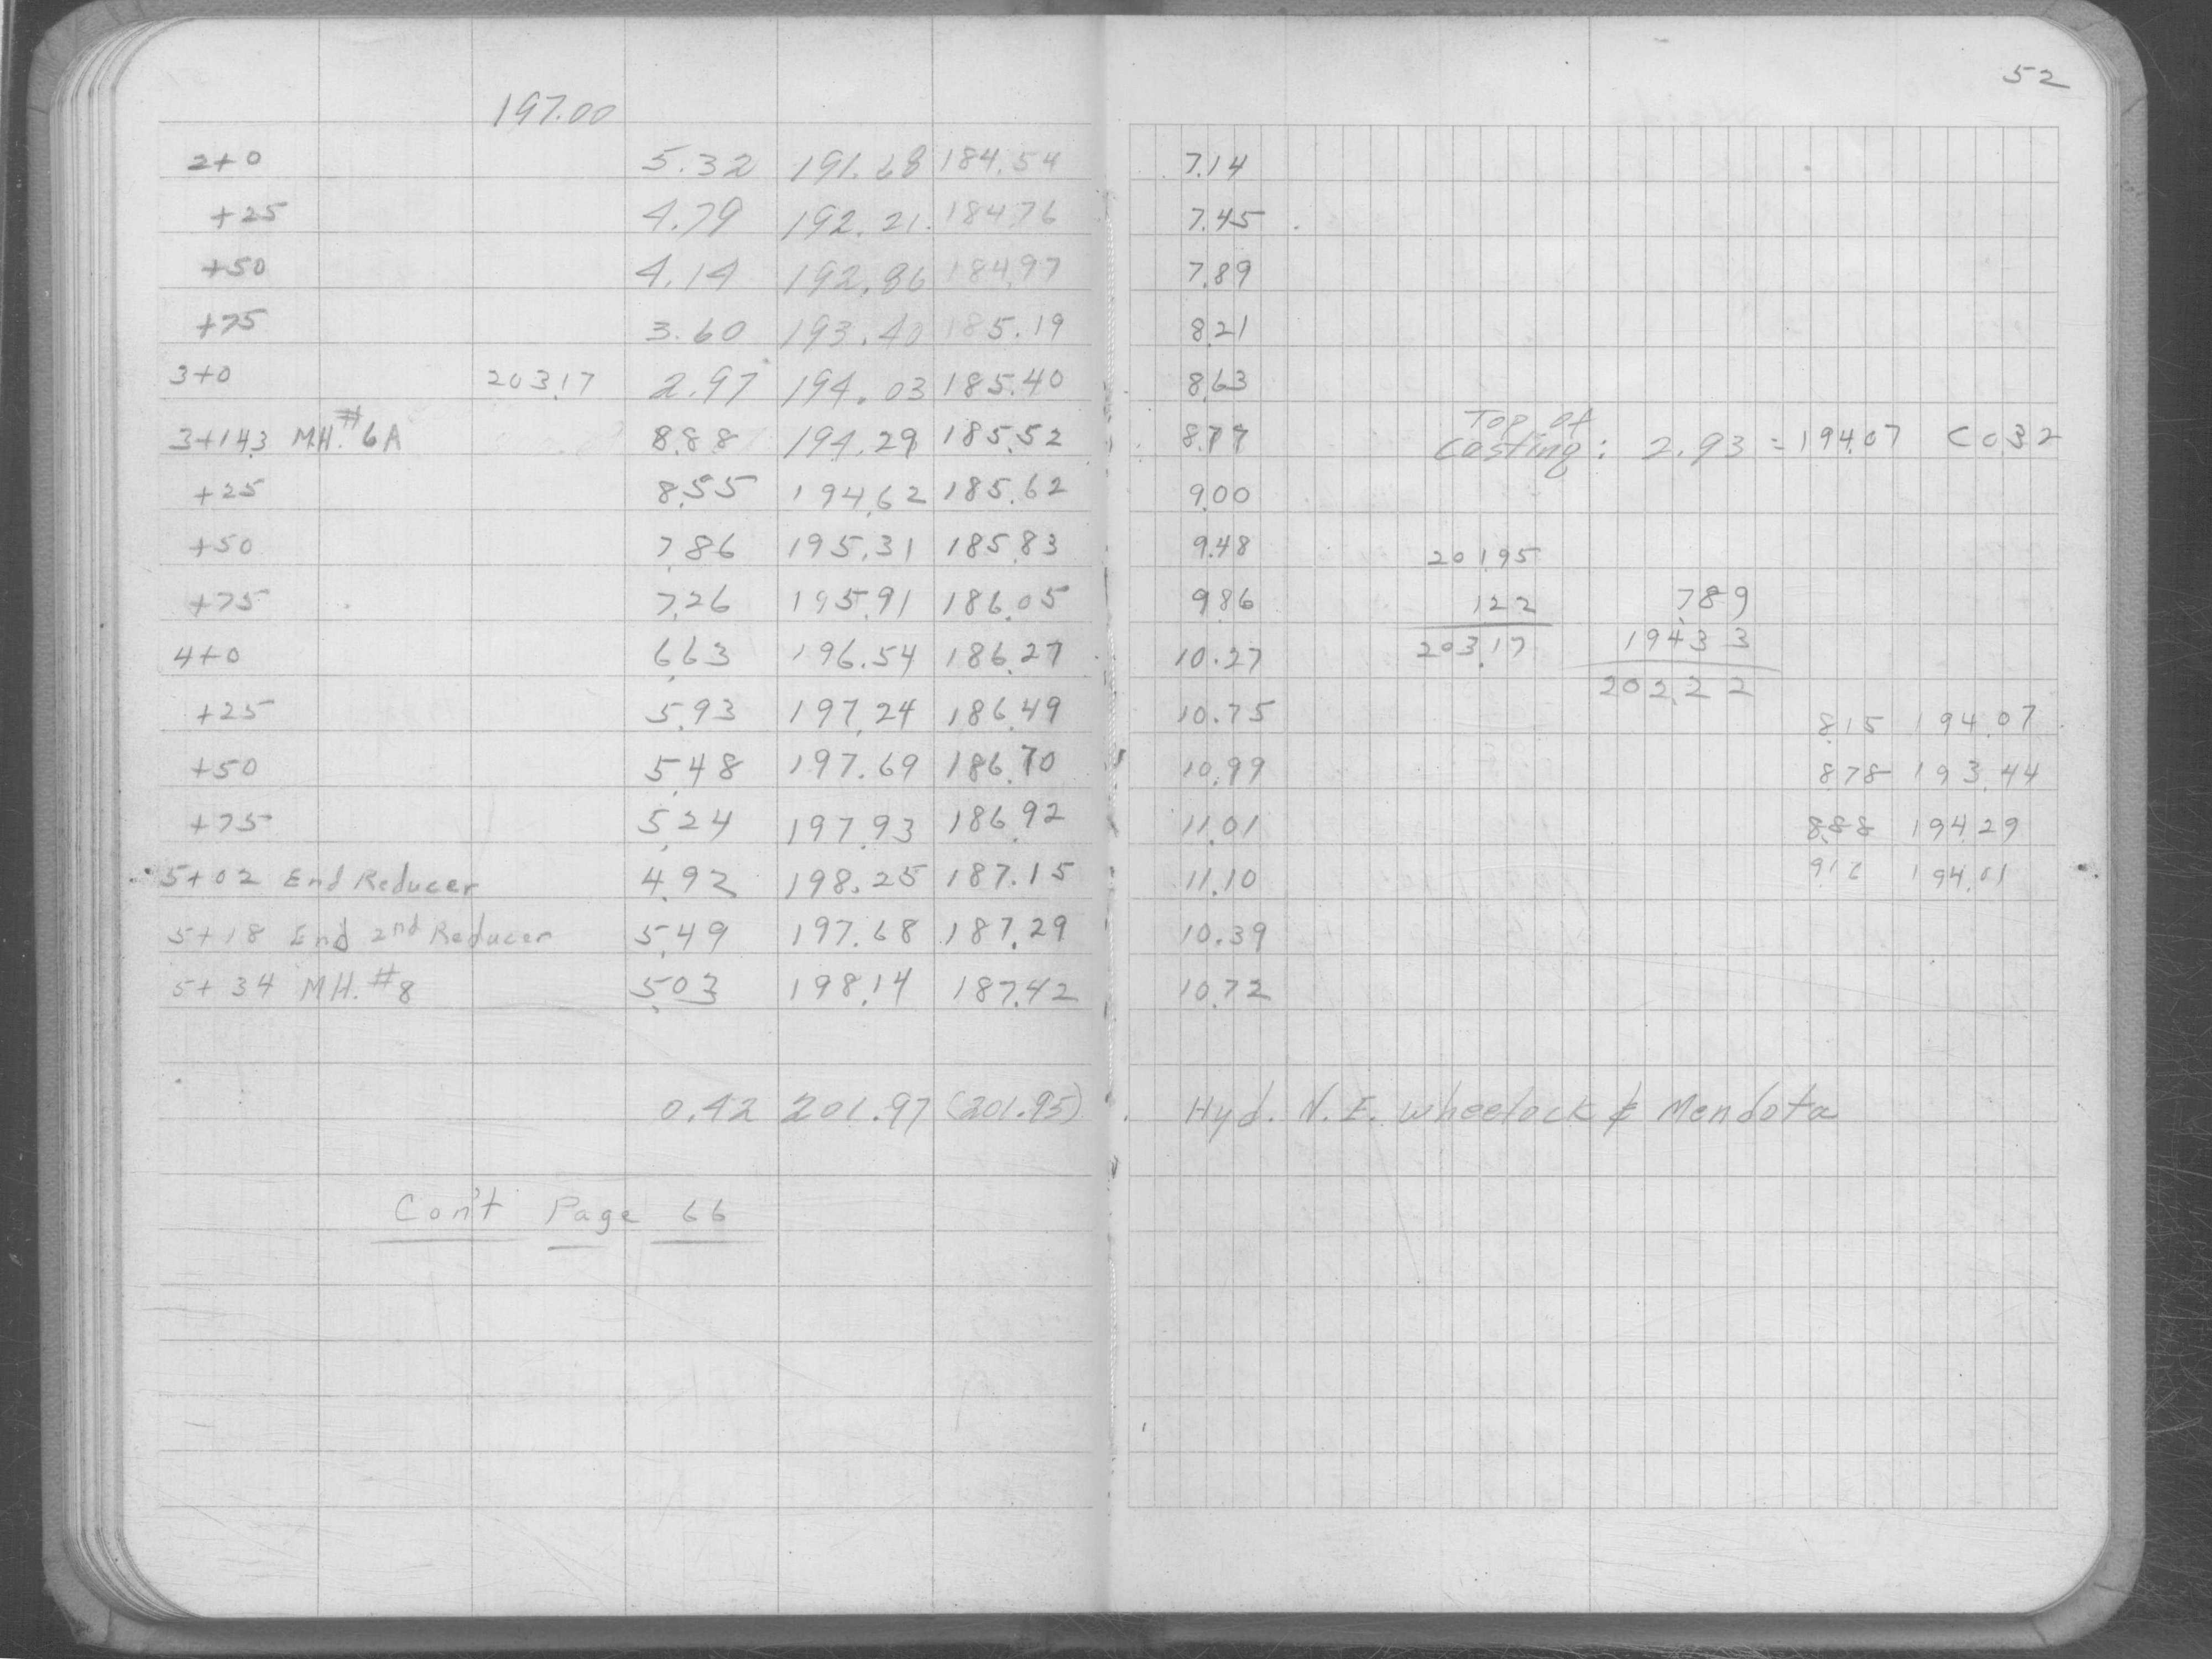 52
197.00
2+0 5.32 191.68 184.54 7.14
+25 4.79 192.21 184.76 7.45
+50 4.14 192.86 184.97 7.89
+75 3.60 193.40 185.19 8.21
3+0 203.17 2.97 194.03 185.40 8.63
3+14.3 M.H. #6A 8.88 194.29 185.52 8.77 Top of Casting: 2.93 = 194.07 C 0.32
+25 8.55 194.62 185.62 9.00
+50 7.86 195.31 185.83 9.48 201.95
+75 7.26 195.91 186.05 9.86 1.22 7.89
4+0 6.63 196.54 186.27 10.27 203.17 194.33
202.22
+25 5.93 197.24 186.49 10.75 8.15 194.07
+50 5.48 197.69 186.70 10.99 8.78 193.44
+75 5.24 197.93 186.92 11.01 8.88 194.29
5+02 End Reducer 4.92 198.25 187.15 11.10 9.16 194.01
5+18 End 2nd Reducer 5.49 197.68 187.29 10.39
5+34 M.H. #8 5.03 198.14 187.42 10.72
0.42 201.97 (201.95) Hyd. N.E. Wheelock & Mendota
Con't Page 66